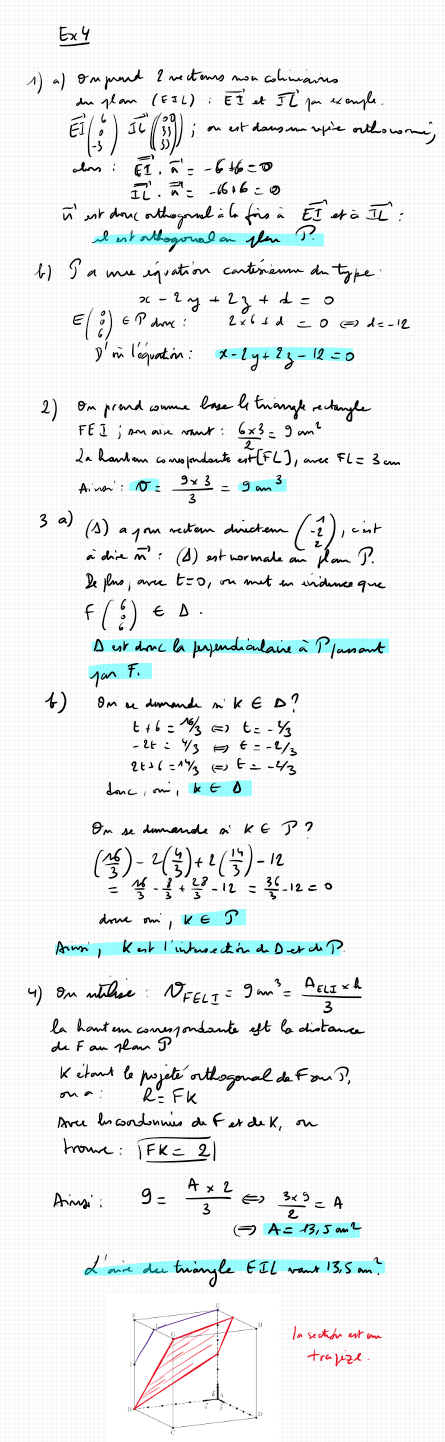 Ex 4
1) a) On prend 2 vecteurs non colinéaires
du plan (EIL) : EI et IL par exemple.
EI (6 0 -3) IL ; on est dans un repère orthonormé,
alors : EI . n = -6+6 = 0
IL . n = -6+6 = 0
n est donc orthogonal à la fois à EI et à IL :
il est orthogonal au plan P.
b) P a une équation cartésienne du type :
x - 2y + 2z + d = 0
E (0 0 6) ∈ P donc : 2×6 + d = 0 ⇔ d = -12
D'où l'équation : x - 2y + 2z - 12 = 0
2) On prend comme base le triangle rectangle
FEI ; son aire vaut : 6×3/2 = 9 cm²
La hauteur correspondante est [FL], avec FL = 3 cm
Ainsi : V = 9×3/3 = 9 cm³
3 a) (Δ) a pour vecteur directeur (1 -2 2), c'est
à dire n : (Δ) est normale au plan P.
De plus, avec t=0, on met en évidence que
F (6 0 6) ∈ Δ.
Δ est donc la perpendiculaire à P passant
par F.
b) On se demande si K ∈ Δ ?
t + 6 = 16/3 ⇔ t = -2/3
-2t = 4/3 ⇔ t = -2/3
2t + 6 = 14/3 ⇔ t = -2/3
donc, oui, K ∈ Δ
On se demande si K ∈ P ?
(16/3) - 2(4/3) + 2(14/3) - 12
= 16/3 - 8/3 + 28/3 - 12 = 36/3 - 12 = 0
donc oui, K ∈ P
Ainsi, K est l'intersection de D et de P.
4) On utilise : V FELI = 9 cm³ = A ELI × h / 3
la hauteur correspondante est la distance
de F au plan P
K étant le projeté orthogonal de F sur P,
on a : h = FK
Avec les coordonnées de F et de K, on
trouve : FK = 2
Ainsi : 9 = A × 2 / 3 ⇔ 3×9/2 = A
⇔ A = 13,5 cm²
L'aire du triangle EIL vaut 13,5 cm².
F E
G H
I
la section est un
trapèze.
B A
D
C